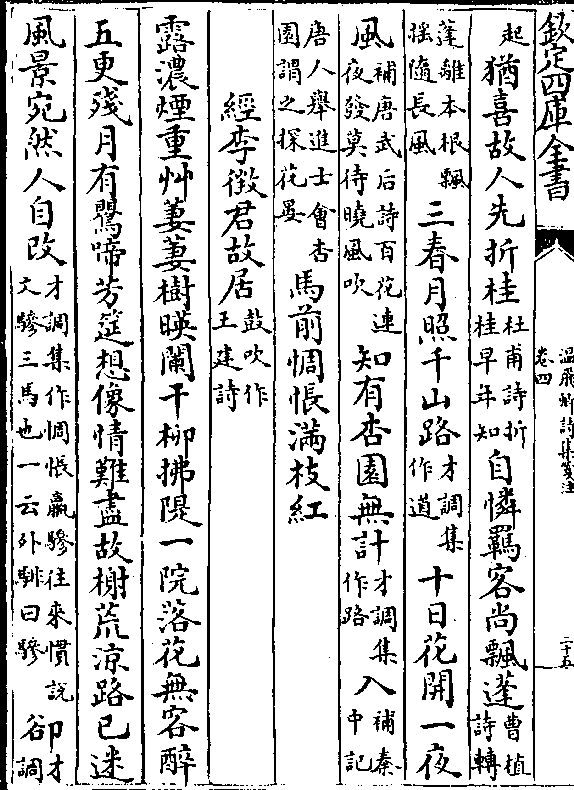 欽定四庫全書
溫飛卿詩集箋注
卷四
二十五
起猶喜故人先折桂杜甫詩折桂早年知自憐羈客尚飄蓬曹植詩轉
蓬離本根飄颻隨長風三春月照千山路才調集作道十日花開一夜
風補唐武后詩百花連夜發莫待曉風吹知有杏園無計才調集作路入補秦中記
唐人舉進士會杏園謂之探花宴馬前惆悵滿枝紅
經李徵君故居鼓吹作王建詩
露濃煙重艸萋萋樹暎闌干柳拂隄一院落花無客醉
五更殘月有鸎啼芳筵想像情難盡故榭荒涼路已迷
風景宛然人自改才調集作惆悵羸驂往來慣說文驂三馬也一云外騑曰驂卻才調谷